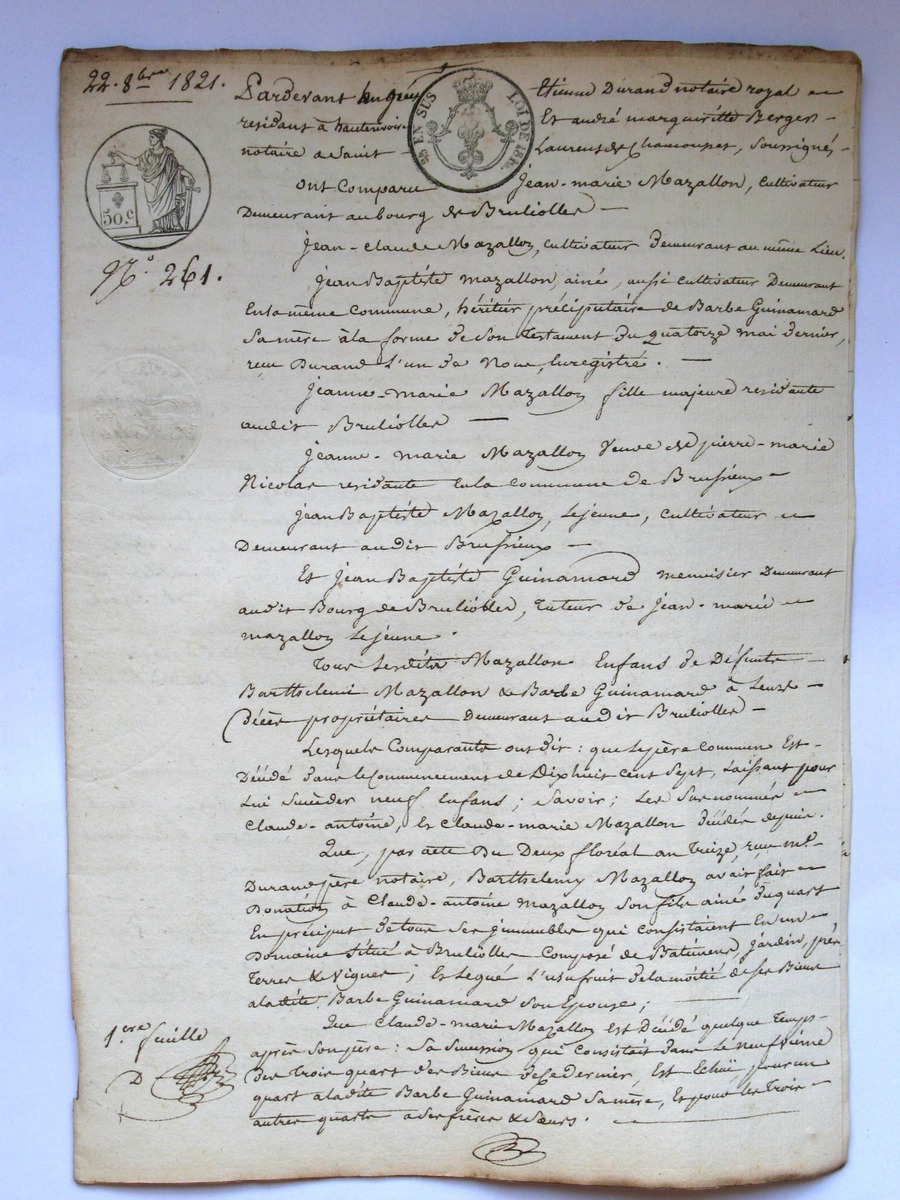 22. 8bre 1821.
Pardevant Etienne Durand notaire royal
residant à hauterivoir Et andré margueritte Berger
notaire a Saint Laurent de Chamousset, Soussignés
EN SUS
LOI DE
50.c
N.o 261.
ont Comparu Jean-marie Mazallon, cultivateur
Demeurant au bourg de Brulioller
Jean-claude Mazallon, cultivateur Demeurant au même Lieu.
Jean Baptiste mazallon, ainé, aussi cultivateur Demeurant
En la même Commune, héritier précipuitaire de Barbe Guinamard
Sa mère à la forme de Son Testament du quatorze mai dernier,
reçu Durand L'un de Nous, Enregistré.
Jeanne-marie Mazallon fille majeure residante
audit Brulioller
Jeanne-marie Mazallon Veuve de pierre-marie
Nicolas residante En la Commune de Brussieux
Jean Baptiste Mazallon, Lejeune, cultivateur
Demeurant audit Brussieux
Et Jean Baptiste Guinamard menuisier Demeurant
audit Bourg de Brulioller, tuteur de Jean-marie
mazallon Lejeune.
Tous Lesdits Mazallon Enfans de Défunts
Barthelemi Mazallon & Barbe Guinamard à Leurs
Décès propriétaires Demeurant audit Brulioller
Lesquels Comparants ont dit: que Le père Commun Est
Décédé dans le Commencement de Dix huit cent Sept, Laissant pour
Lui Succèder neuf Enfans; Savoir; Les Sus nommés
Claude-antoine, Et Claude-marie Mazallon Décédés depuis.
Que, par acte Du Deux floréal an treize, reçu M.e
Durand père notaire, Barthelemy Mazallon avait fait
Donation à Claude-antoine Mazallon Son fils ainé Du quart
En préciput De tous Ses immeubles qui Consistaient En un
Domaine Situé à Brulioller Composé de Batimens, Jardin, prés
Terres & Vignes; Et Legué L'usufruit De la moitié de Ses Biens
a ladite Barbe Guinamard Son Epouse;
Que Claude-marie Mazallon Est Décédé quelque Temps
après Son père: Sa Succession qui Consistait dans Le neufvième
Des Trois quart des Biens de Ce dernier, Est Echuë pour un
quart a ladite Barbe Guinamard Sa mère, Et pour les Trois
autres quarts a Ses frères & Sœurs.
1.ere feuille
D